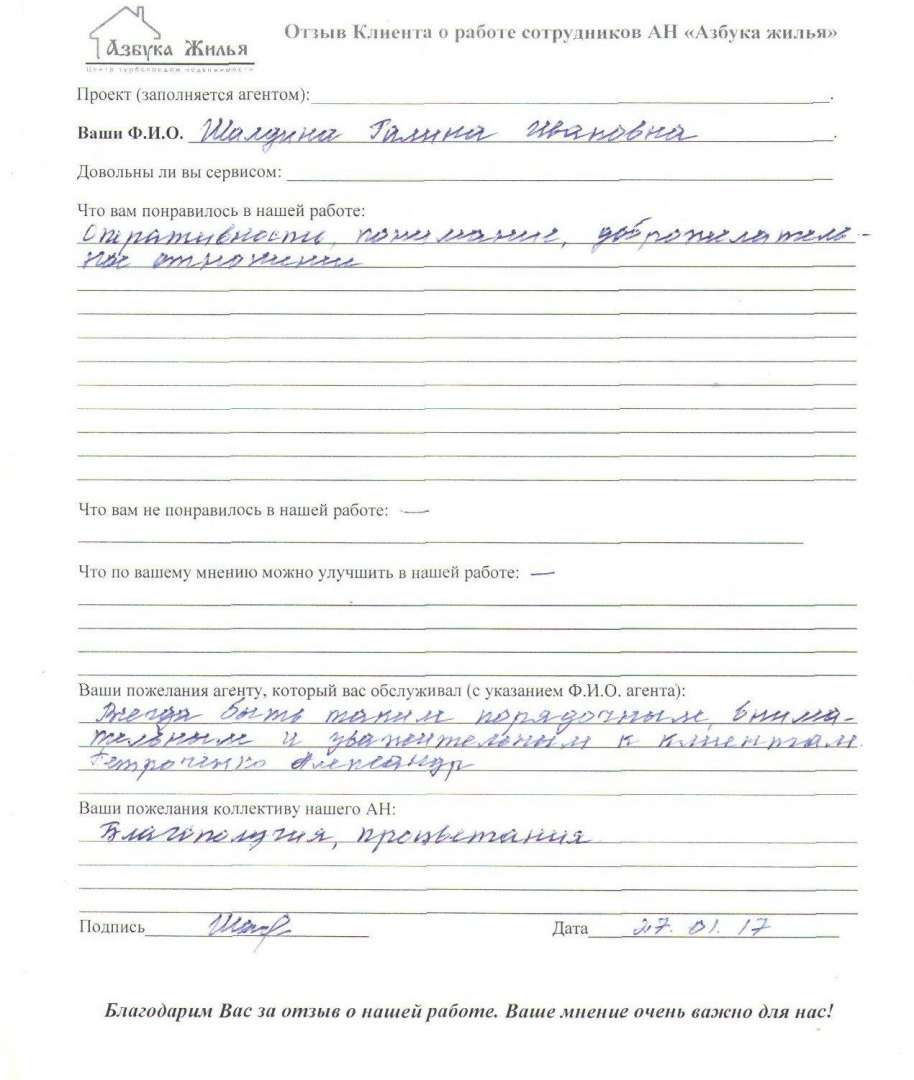 Азбука Жилья
Центр турбопродаж недвижимости
Отзыв Клиента о работе сотрудников АН «Азбука жилья»
Проект (заполняется агентом):
Ваши Ф.И.О. Шалдина Галина Ивановна
Довольны ли вы сервисом:
Что вам понравилось в нашей работе:
Оперативность, понимание, доброжелатель-
ное отношение
Что вам не понравилось в нашей работе: —
Что по вашему мнению можно улучшить в нашей работе: —
Ваши пожелания агенту, который вас обслуживал (с указанием Ф.И.О. агента):
Всегда быть таким порядочным, внима-
тельным и уважительным к клиентам.
Петроченко Александр
Ваши пожелания коллективу нашего АН:
Благополучия, процветания
Подпись Дата 27.01.17
Благодарим Вас за отзыв о нашей работе. Ваше мнение очень важно для нас!